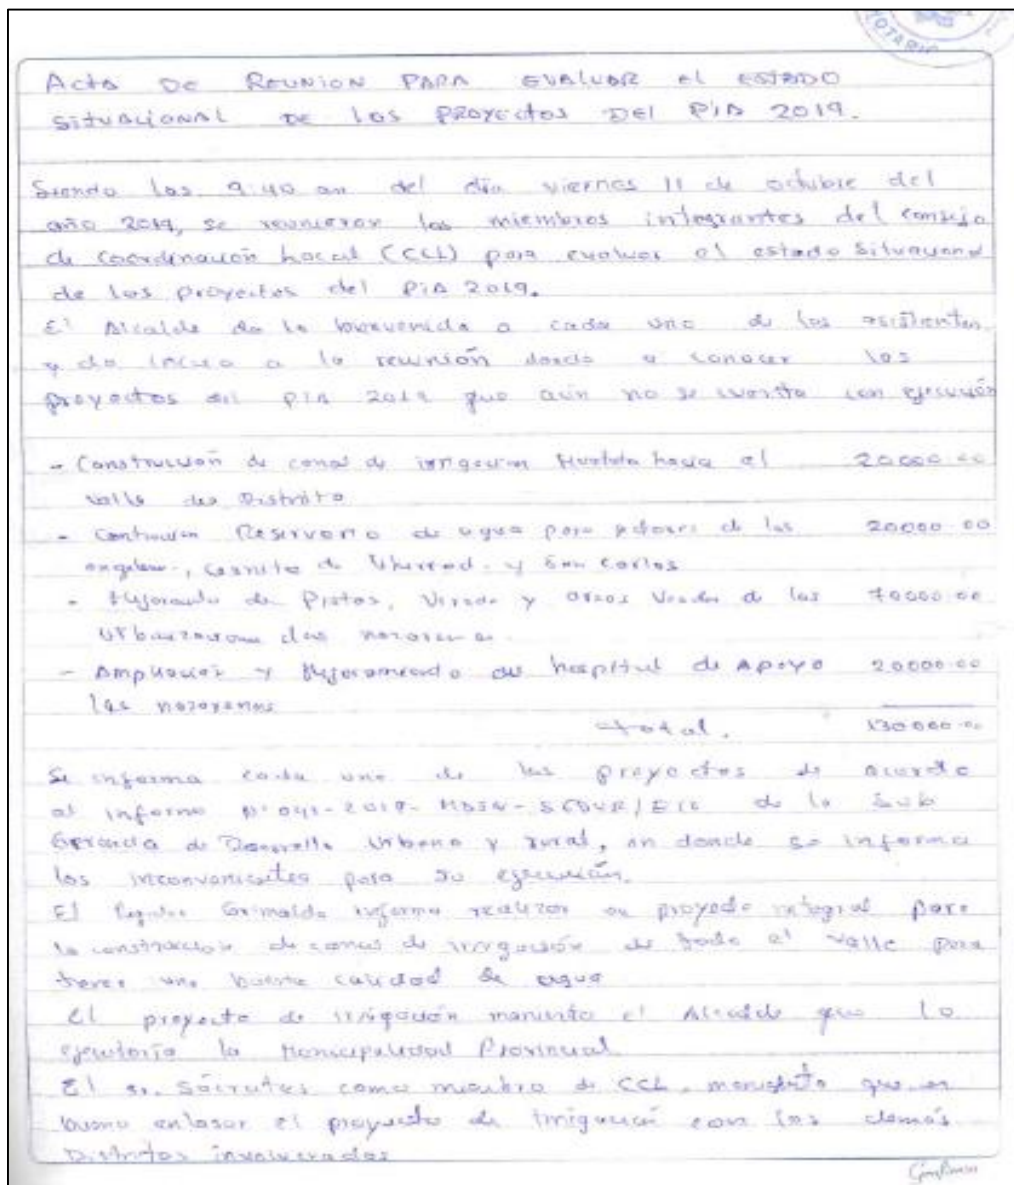 NOTARIO
Acta DE REUNION PARA EVALUAR el ESTADO
SITUACIONAL DE los PROYECTOS DEL PIA 2019.
Siendo las 9:40 am del día viernes 11 de octubre del
año 2019, se reunieron los miembros integrantes del consejo
de Coordinación Local (CCL) para evaluar el estado situayonal
de los proyectos del PIA 2019.
El Alcalde da la bienvenida a cada uno de los asistentes
y da inicio a la reunión dando a conocer los
proyectos del PIA 2019 que aún no se cuenta con ejecución
- Construcción de canal de irrigación hacia el 20000.00
valle del Distrito
- Reservorio de agua para de los 20000.00
y San Carlos
- de Pistas, Vereda y de las 70000.00
nazarenas
- Ampliación y Mejoramiento del hospital de Apoyo 20000.00
las nazarenas
total. 130000.00
Se informa cada uno de los proyectos de acuerdo
al informe N° 041-2019- de la Sub
Gerencia de Desarrollo Urbano y rural, en donde se informa
los inconvenientes para su ejecución.
El Regidor Grimaldo informa realizar un proyecto integral para
la construcción de canal de irrigación de todo el valle para
tener una buena calidad de agua
El proyecto de irrigación el Alcalde que lo
ejecutaría la Municipalidad Provincial
El sr. Sócrates como miembro de CCL, que es
bueno enlasar el proyecto de irrigación con los demás
Distritos involucrados